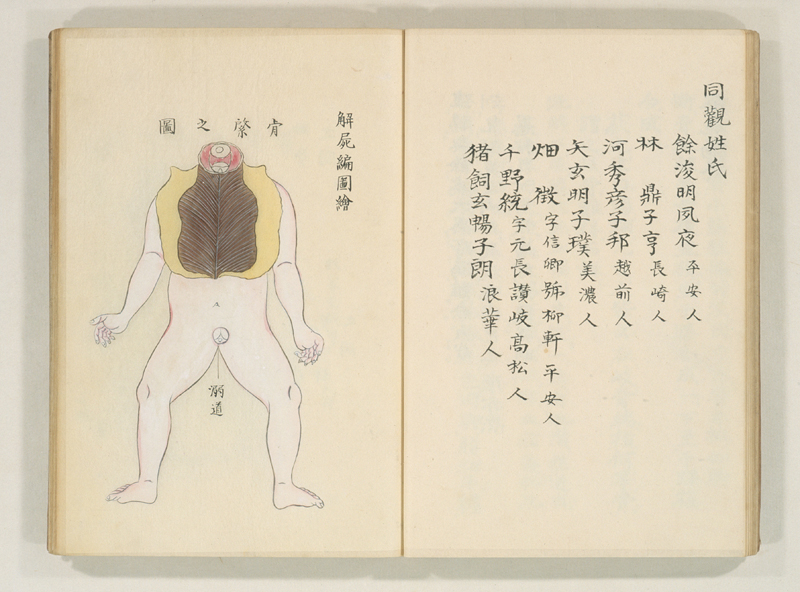 同觀姓氏
餘浚明夙夜 平安人
林 鼎子亨 長崎人
河秀彦子邦 越前人
矢玄明子璞 美濃人
畑 徴 字信卿號柳軒 平安人
千野統 字元長讃岐高松人
猪飼玄暢子朗 浪華人
解屍編圖繪
肯綮之圖
溺道